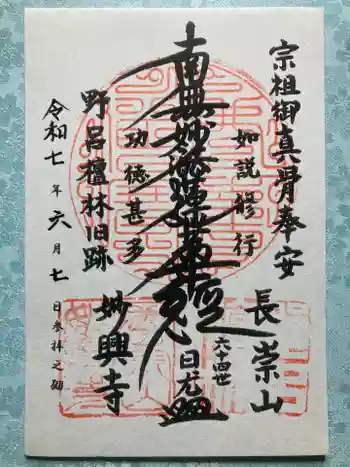 宗祖御真骨奉安
長崇山
如説修行
南無妙法蓮華経
六十四世
日
功徳甚多
野呂檀林旧跡
妙興寺
令和七年六月七日参拝之砌